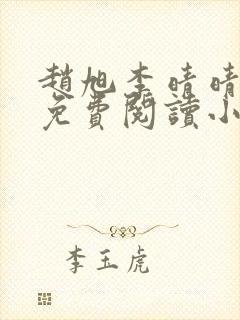 趙旭李晴晴
免費閱讀小
李玉虎